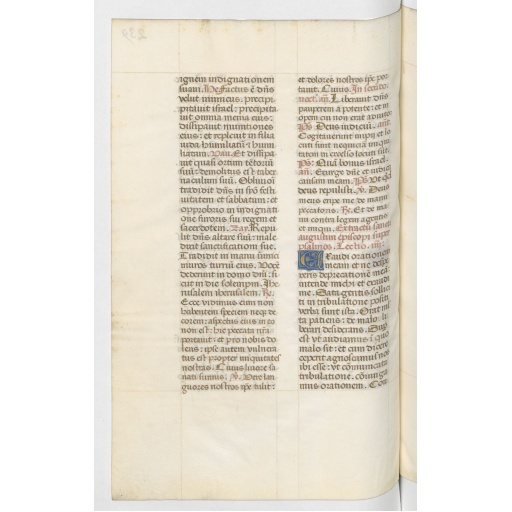 ignem indignationem
suam. He. Factus e dns
velut inimicus: precipi
pitavit israel: precipita
vit omnia menia eius:
dissipavit munitiones
eius: et replevit in filia
iuda humiliatu et humi
liatum. Vau. Et dissipa
vit quasi ortum tetoriu
suu: demolitus est taber
naculum suu. Oblivioi
tradidit dns in syo festi
vitatem et sabbatum: et
opprobrio in indignati
one furoris sui regem et
sacerdotem. Zay. Repu
lit dns altare suu: male
dixit sanctificationi sue.
Tradidit in manu inimici
muros turriu eius. Voce
dederunt in domo dni: si
cut in die solempni. Ihe
rusalem iherusalem. R.
Ecce vidimus eum non
habentem speciem neqz de
corem: aspectus eius in eo
non est: hic peccata nra
portavit: et pro nobis do
lens: ipse autem vulnera
tus est propter iniquitates
nostras. Cuius livore sa
nati sumus. V. Vere lan
guores nostros ipe tulit:
et dolores nostros ipe por
tavit. Cuius. In secundo
noct. an. Liberavit dns
pauperem a potente: et in
opem cui non erat adiutor.
Ps. Deus iudiciu. an.
Cogitaverunt impii et lo
cuti sunt nequicia iniqui
tatem in excelso locuti sut.
Ps. Qua bonus israel.
an. Exurge dne et iudica
causam meam. Ps. Ut qd
deus repulisti. V. Deus
meus eripe me de manu
peccatoris. R. Et de ma
nu contra legem agentis
et iniqui. Ex tractatu sancti
augustini episcopi super
psalmos. Lectio.
Exaudi orationem
meam et ne despe
xeris deprecatione mea:
intende michi et exaudi
me. Satagentis solliciti
in tribulatione positi
verba sunt ista. Orat mul
ta patiens: de malo li
berari desiderans. Sup
est ut audiamus i quo
malo sit: et cum dicere
ceperit agnoscamus nos
ibi esse: ut comunicata
tribulatione coniunga
mus orationem. Con